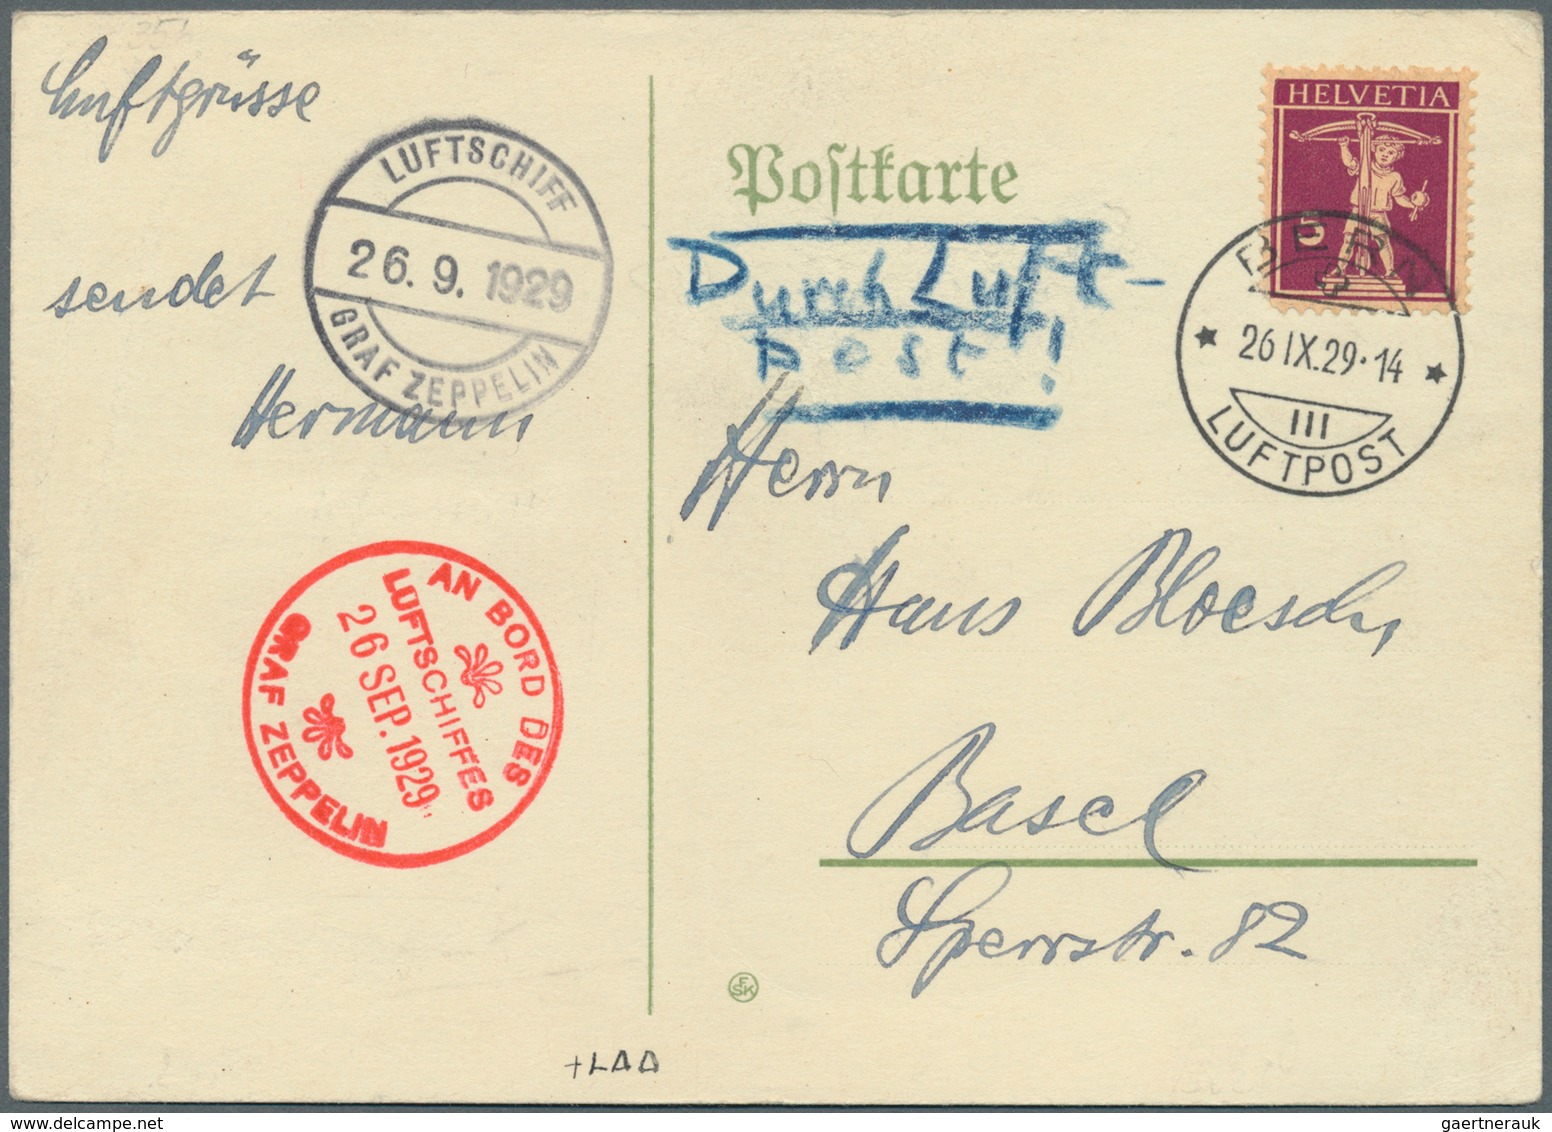 Luftgrüsse
sendet
Hermann
LUFTSCHIFF
26.9.1929
GRAF ZEPPELIN
AN BORD DES
LUFTSCHIFFES
26 SEP. 1929
GRAF ZEPPELIN
Poſtkarte
Durch Luft-
post!
HELVETIA
5
BERN
26 IX.29·14
III
LUFTPOST
Herrn
Hans Bloesch,
Basel
Sperrstr. 82
FSK
gaertnerauk @ delcampe.net